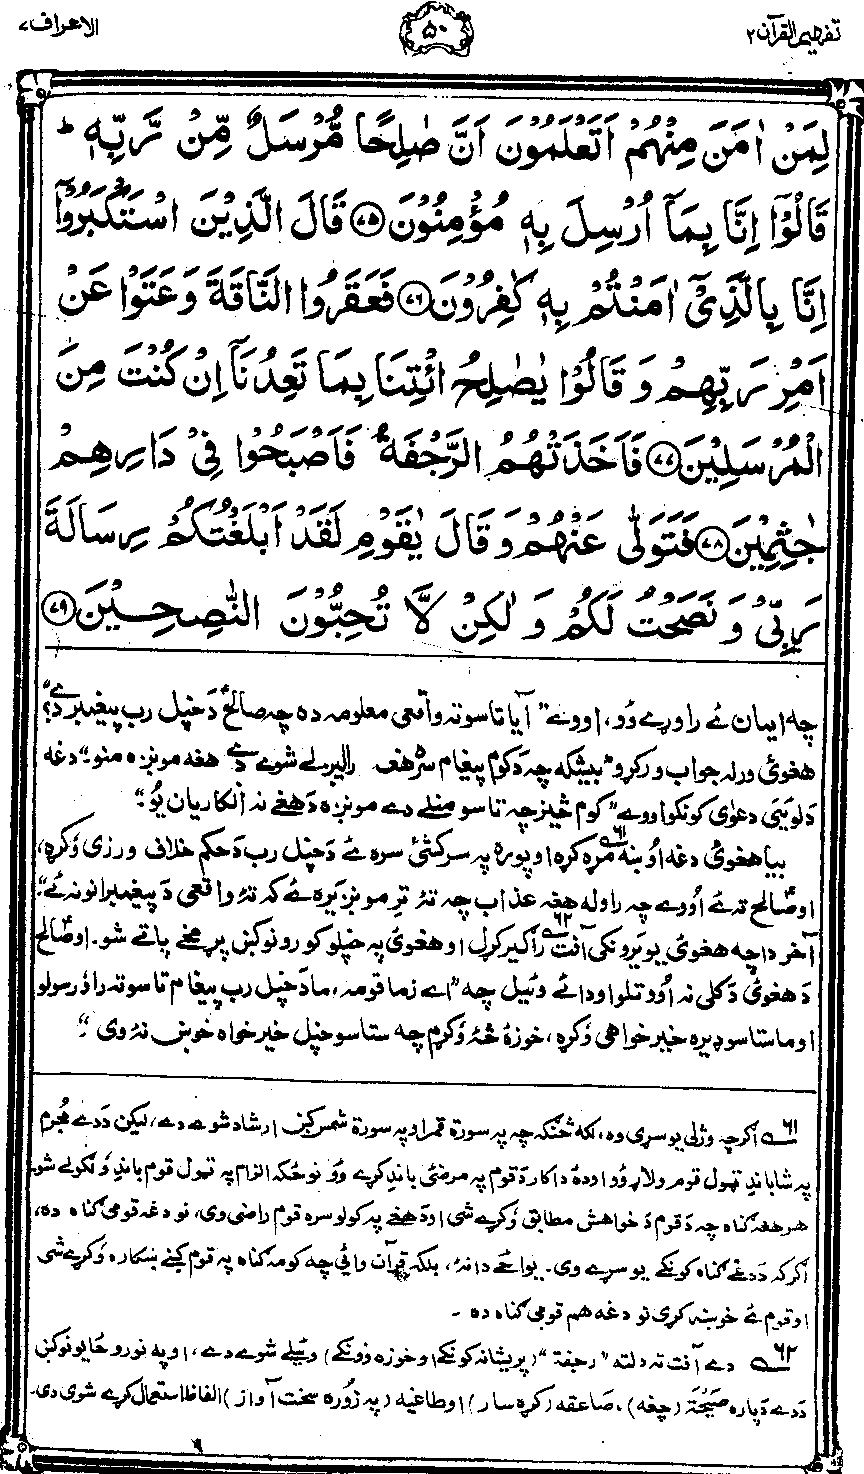 تفهیم القرآن ۲
۵۰
الاعراف ۷
لِمَنْ اٰمَنَ مِنْهُمْ اَتَعْلَمُوْنَ اَنَّ صٰلِحًا مُّرْسَلٌ مِّنْ رَّبِّهٖ ؕ
قَالُوْۤا اِنَّا بِمَاۤ اُرْسِلَ بِهٖ مُؤْمِنُوْنَ ﴿۷۵﴾ قَالَ الَّذِيْنَ اسْتَكْبَرُوْۤا
اِنَّا بِالَّذِيْۤ اٰمَنْتُمْ بِهٖ كٰفِرُوْنَ ﴿۷۶﴾ فَعَقَرُوا النَّاقَةَ وَعَتَوْا عَنْ
اَمْرِ رَبِّهِمْ وَ قَالُوْا يٰصٰلِحُ ائْتِنَا بِمَا تَعِدُنَاۤ اِنْ كُنْتَ مِنَ
الْمُرْسَلِيْنَ ﴿۷۷﴾ فَاَخَذَتْهُمُ الرَّجْفَةُ فَاَصْبَحُوْا فِيْ دَارِهِمْ
جٰثِمِيْنَ ﴿۷۸﴾ فَتَوَلّٰى عَنْهُمْ وَ قَالَ يٰقَوْمِ لَقَدْ اَبْلَغْتُكُمْ رِسَالَةَ
رَبِّيْ وَ نَصَحْتُ لَكُمْ وَ لٰكِنْ لَّا تُحِبُّوْنَ النّٰصِحِيْنَ ﴿۷۹﴾
چه ایمان ئے راوړے وُو، اووے ”آیا تاسو ته واقعی معلومه ده چه صالحؑ دَ خپل رب پیغمبر دے؟“
هغوئ ورله جواب ورکړو ”بیشکه چه دَ کوم پیغام سره هغه رالیږلے شوے دے هغه مونږه منو“ دغه
دَ لوئی دعوٰی کونکو اووے ”کوم څیز چه تاسو منلے دے مونږه دَ هغے نه انکاریان یُو“
بیا هغوئ دغه اُوښه ۶۱ مړه کړه او پوره په سرکشئ سره ئے دَ خپل رب دَ حکم خلاف ورزی وُکړه،
او صالحؑ ته ئے اُووے چه راوله هغه عذاب چه تهٔ ترِ مونږ یَرَوے که تهٔ واقعی دَ پیغمبرانو نه ئے“
آخر دا چه هغوئ یو یَرَونکی آفت ۶۲ راګیر کړل او هغوئ په خپلو کورونو کښ پړمخے پاتے شو. او صالحؑ
دَ هغوئ دَ کلی نه اُووتلو او دائے وئیل چه ”اے زما قومه، ما دَ خپل رب پیغام تاسو ته راؤ رسولو
او ما ستاسو ډیره خیر خواهی وُکړه، خو زهٔ څهٔ وُکړم چه ستاسو خپل خیر خواه خوښ نهٔ وی“
۶۱ اګرچه وژلی یو سړی وه، لکه څنګه چه په سورة قمر او په سورة شمس کښ ارشاد شوے دے، لیکن دَ دے مُجرم
په شا باندِ ټول قوم ولاړ وُو او دهٔ دا کار دَ قوم په مرضئ باندِ کړے وُو نو ځکه الزام په ټول قوم باندِ وُ لګولے شو
هر هغه ګناه چه دَ قوم دَ خواهش مطابق وُکړے شی او دَ هغے په کولو سره قوم راضی وی، نو دغه قومی ګناه ده،
اګرکه دَ دغے ګناه کونکے یو سړے وی۔ یواځے دا نهٔ، بلکه قرآن وائی چه کومه ګناه په قوم کښے ښکاره وُکړے شی
او قوم ئے خوښه کړی نو دغه هم قومی ګناه ده ۔
۶۲ دے آفت ته دلته ”رجفة“ (پریشانه کونکے او خوزه وونکے) وئیلے شوے دے، او په نورو ځایونو کښ
دَ دے دَ پاره صَیْحَة (چغه)، صاعقه (کړه سار) او طاغیه (په زوره سخت آواز) الفاظ استعمال کړے شوی دی۔